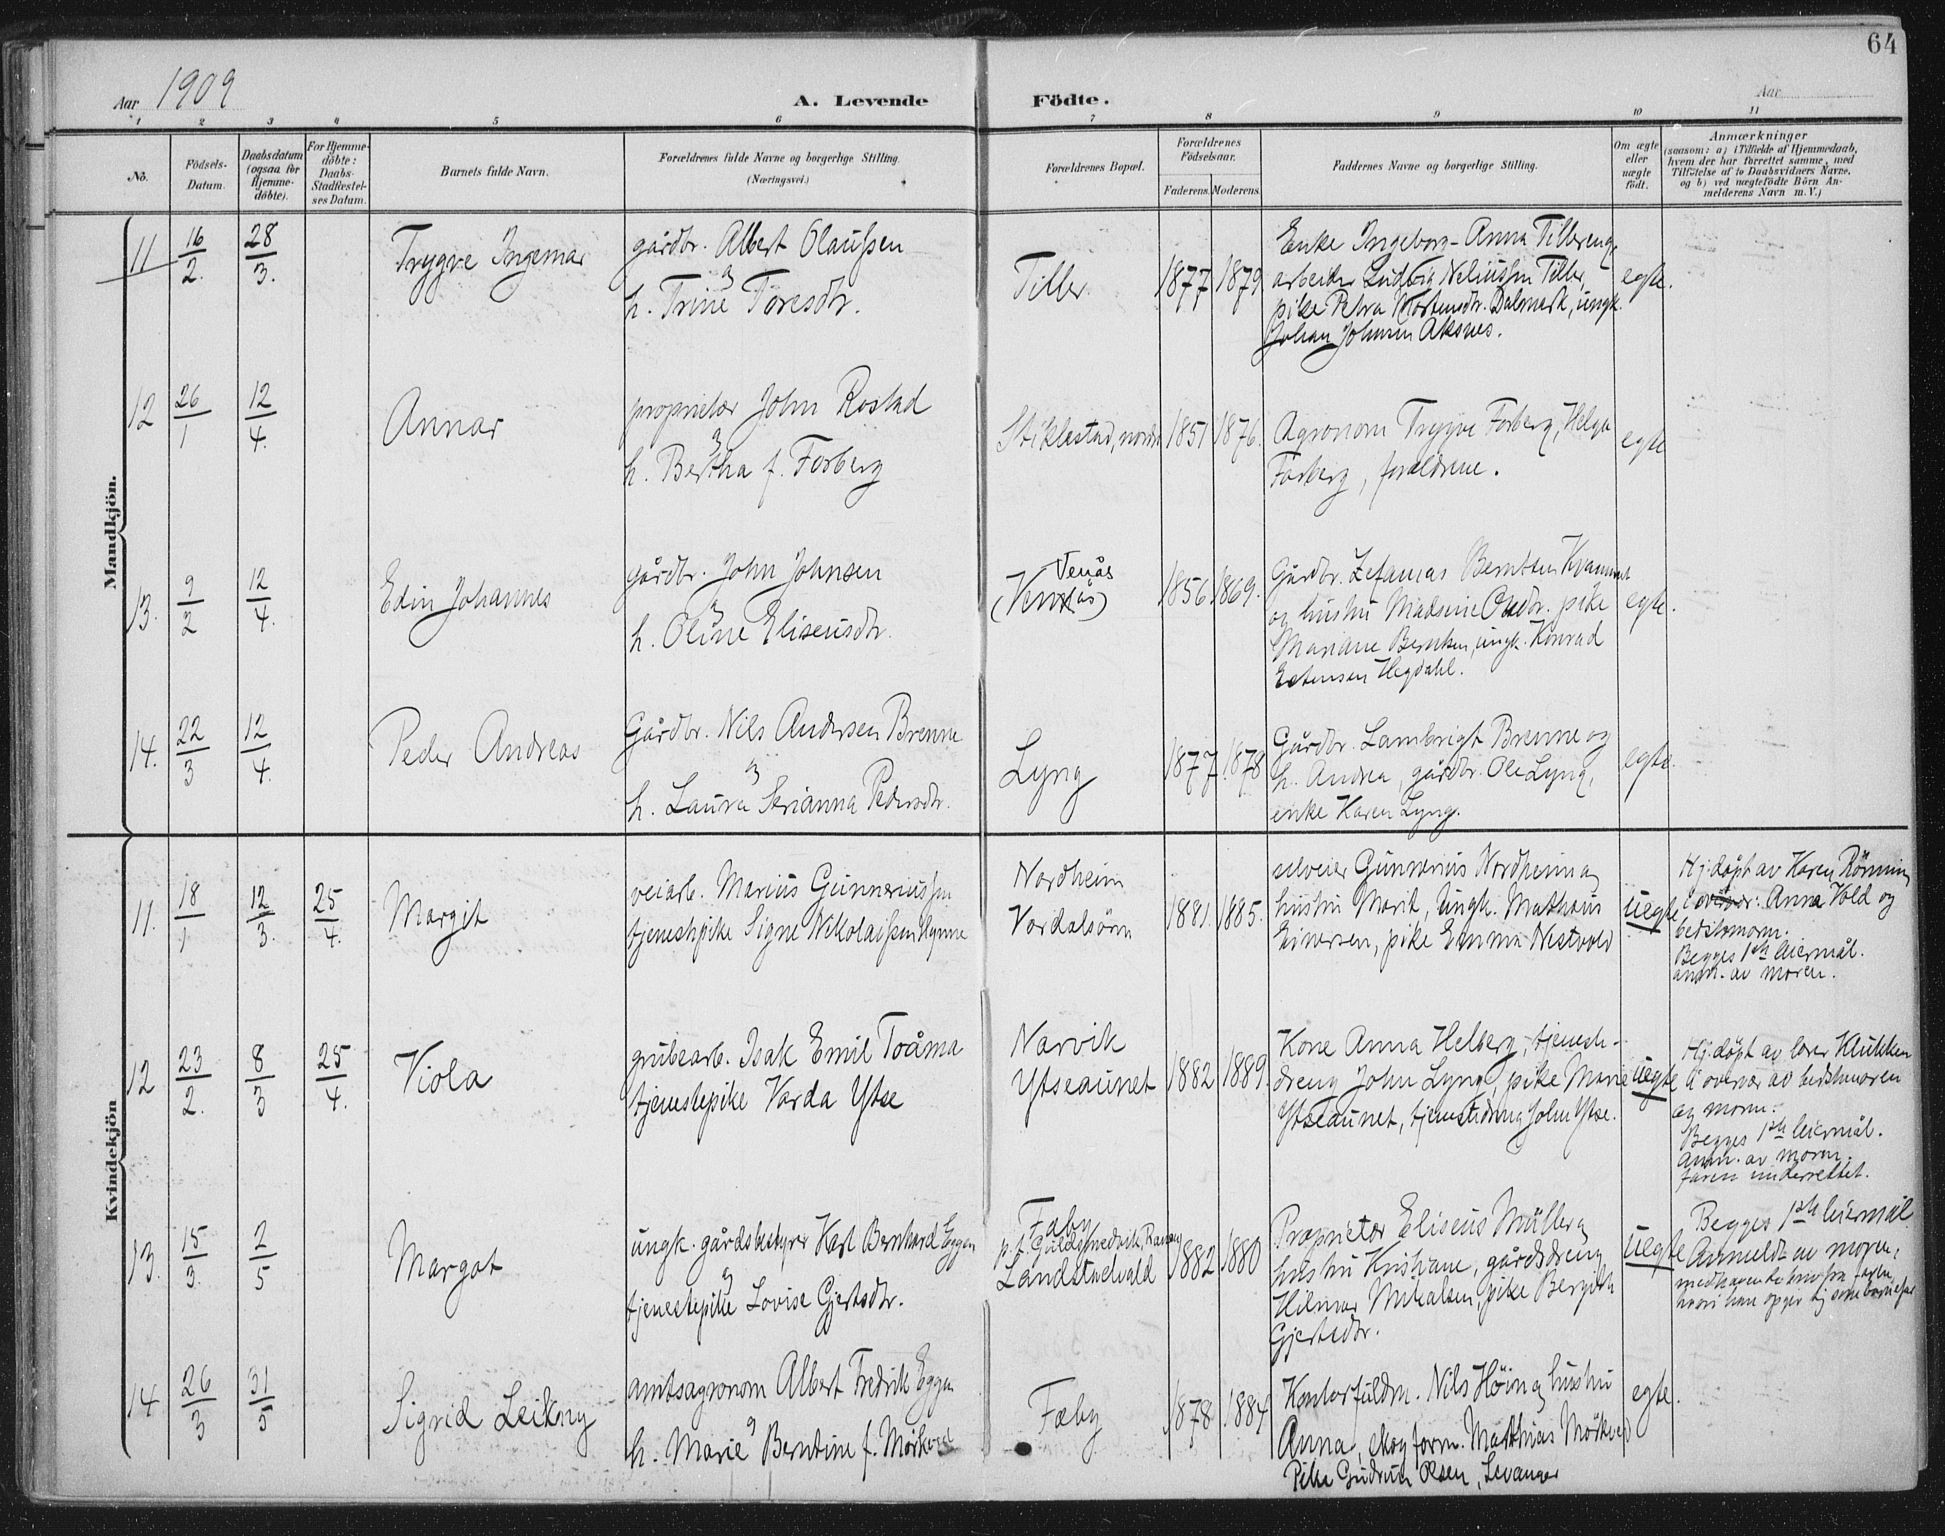 64
Aar 1909
A. Levende Födte.
Aar
1 2 3 4 5 6 7 8 9 10 11
No.
Födsels-Datum.
Daabsdatum (ogsaa for Hjemme-döbte).
For Hjemme-döbte: Daabs-Stadfæstel-ses Datum.
Barnets fulde Navn.
Forældrenes fulde Navne og borgerlige Stilling. (Næringsvei.)
Forældrenes Bopæl.
Forældrenes Födselsaar.
Faderens. Moderens.
Faddernes Navne og borgerlige Stilling.
Om ægte eller uægte födt.
Anmærkninger
(saasom: a) i Tilfælde af Hjemmedaab,
hvem der har forrettet samme, med
Tilföielse af to Daabsvidners Navne,
og b) ved uægtefödte Börn An-
melderens Navn m. V.)
Mandkjön.
11 16/2. 28/3. Trygve Ingemar
gårdbr. Albert Olaussen
h. Trine Toresdr.
Tiller 1877 1879
Enke Ingeborg-Anna Tillereng,
arbeider Ludvig Neliussen Tiller,
pike Petra Mortensdr. Dalemark, ungk.
Johan Johnsen Aksnes.
egte.
12 26/1 12/4. Annar
proprietær John Rostad
h. Bertha f. Forberg
Stiklestad, nordre 1851 1876.
Agronom Trygve Forberg, Helga
Forberg, forældrene.
egte
13. 9/2 12/4. Edin Johannes
gårdbr. John Johnsen
h. Oline Eliseusdr.
Venås
(Venås) 1856 1869.
Gårdbr. Zefanias Berntsen Kvammet
og hustru Madsine Olsdr. pike
Mariane Berntsen, ungk. Konrad
Estensen Hegdahl.
egte.
14. 22/3 12/4. Peder Andreas
Gårdbr. Nils Andersen Brenne
h. Laura Serianna Pedersdr.
Lyng 1877 1878
Gårdbr. Lambrigt Brenne og
h. Andrea, gårdbr. Ole Lyng,
enke Karen Lyng.
egte.
Kvindekjön
11. 18/1 12/3. 25/4. Margit
veiarb. Marius Gunneriussen
tjenestpike Signe Nikolaissen Hynne
Nordheim
Verdalsören 1881. 1885.
selveier Gunnerius Nordheim og
hustru Marit, ungk. Mathæus
Einersen, pike Emma Nestvold
uegte
Hj.døpt av Karen Rönning
i overv: Anna Vold og
bedstemoren.
Begges 1ste leiermål.
anm. av moren.
12 23/2. 8/3 25/4. Viola
grubearb. Isak Emil Toåma
tjenestepike Varda Ytse
Narvik
Ytseaunet 1882 1889.
Kone Anna Helberg, tjeneste-
dreng John Lyng, pike Marie
Ytseaunet, tjenestedreng John Ytse.
uegte
Hj.døpt av lærer Klukken
i overvær av bedstemoren
og moren.
Begges 1ste leiermål.
Anm. av moren.
faren underrettet.
13. 15/3. 2/5 Margot
ungk. gårdsbestyrer Karl Bernhard Eggen
tjenestepike Lovise Gjertsdr.
Fæby
p. t. Guldsmedvik, Ranen
Landstuevald 1882 1880
Proprietær Eliseus Müller og
hustru Kristiane, gårdsdreng
Hilmar Mikalsen, pike Bergith
Gjertsdr.
uegte
Begges 1ste leiermål
Anmeldt av moren,
14 26/3 31/5 Sigrid Leikny
amtsagronom Albert Fredrik Eggen
h. Marie Berntine f. Mörkved
Fæby 1878 1884
Kontorfuldm. Nils Höin og hustru
Anna, skogform. Matthias Mörkved
Pike Gudrun Olsen, Levanger
egte.